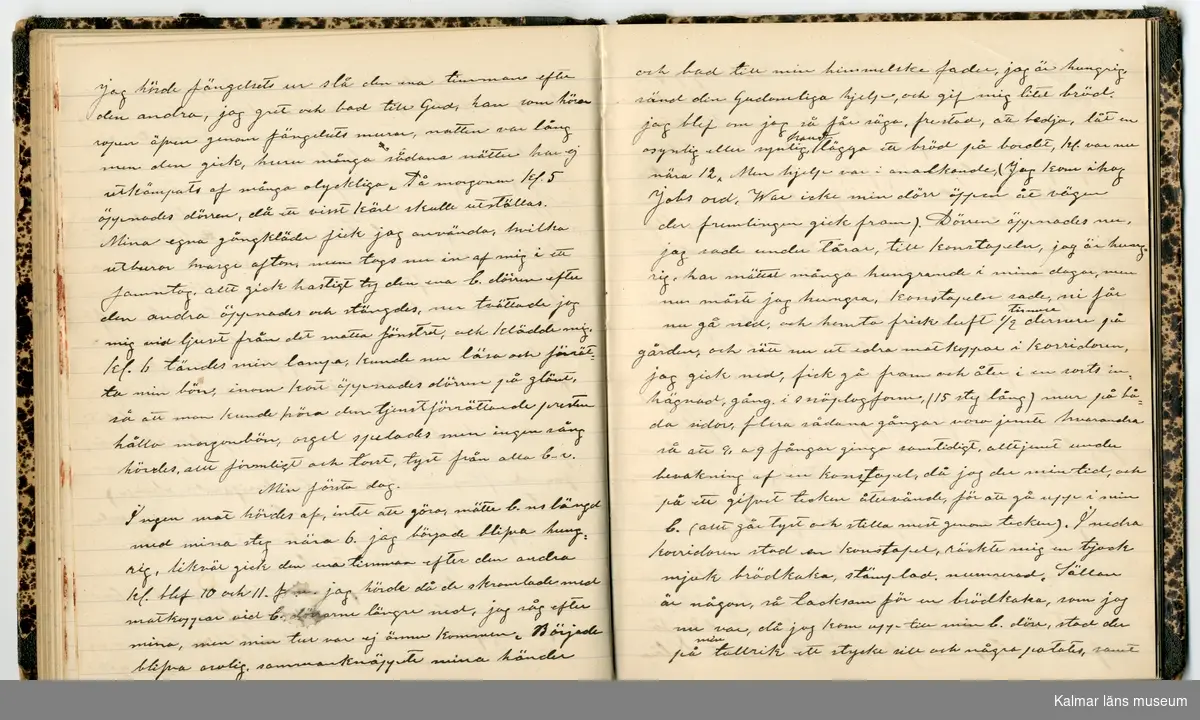 jag hörde fängelsets ur slå den ena timman efter
den andra, jag gret och bad till Gud, han som hörer
ropen äfven genom fängelsets murar, natten var lång
men den gick, huru många sådana nätter har ej
utkämpats af många olyckliga. På morgonen kl. 5
öppnades dörren, då ett visst kärl skulle utställas.
Mina egna gångkläder fick jag använda, hvilka
utburos hvarje afton, men togs nu in af mig i ett
famntag. allt gick hastigt ty den ena C. dörren efter
den andra öppnades och stängdes, nu tvättade jag
mig vid ljuset från det matta fönstret, och klädde mig.
Kl. 6 tändes min lampa, kunde nu läsa och förrät-
ta min bön, inom kort öppnades dörren på glänt,
så att man kunde höra den tjenstförrättande presten
hålla morgonbön, orgel spelades men ingen sång
hördes, allt förmligt och torrt, tyst från alla C-r.
Min första dag.
Ingen mat hördes af, intet att göra, mätte C. ns längd
med mina steg nära 6. jag började blifva hung-
rig, likväl gick den ena timman efter den andra
Kl. blef 10 och 11. f m. jag hörde då de skramlade med
matkoppar vid C. dörrarne längre ned, jag såg efter
mina, men min tur var ej ännu kommen. Började
blifva orolig. sammanknäppte mina händer
och bad till min himmelske fader, jag är hungrig.
sänd din Gudomliga hjelp, och gif mig litet bröd.
jag blef om jag så får säga, frestad, att bedja, låt en
osynlig eller synlig hand lägga ett bröd på bordet, kl var nu
nära 12. Men hjelp var i analkande, (Jag kom ihog
Jobs ord. War icke min dörr öppen åt vägen
der fremlingen gick fram). Dörren öppnades nu,
jag sade under tårar, till konstapeln, jag är hung-
rig, har mättat många hungrande i mina dagar, men
nu måste jag hungra, konstapeln sade, ni får
nu gå ned, och hemta frisk luft 1/2 timme dernere på
gården, och sätt nu ut edra matkoppar i korridoren,
jag gick ned, fick gå fram och åter i en sorts in-
hägnad, gång, i snöplogform, (15 steg lång) mur på bå-
da sidor, flera sådana gångar voro jemte hvarandra
så att 8 a 9 fångar gingo samtidigt, alltjemt under
bevakning af en konstapel, då jag der min tid, och
på ett gifvet tecken återvände, för att gå upp i min
C. (allt går tyst och stilla mest genom tecken). I nedra
korridoren stod en konstapel, räckte mig en tjock
mjuk brödkaka, stämplad. numrerad. Sällan
är någon, så tacksam för en brödkaka, som jag
nu var, då jag kom upp till min C. dörr, stod der
på min tallrik ett stycke sill och några potates, samt
Kalmar läns museum